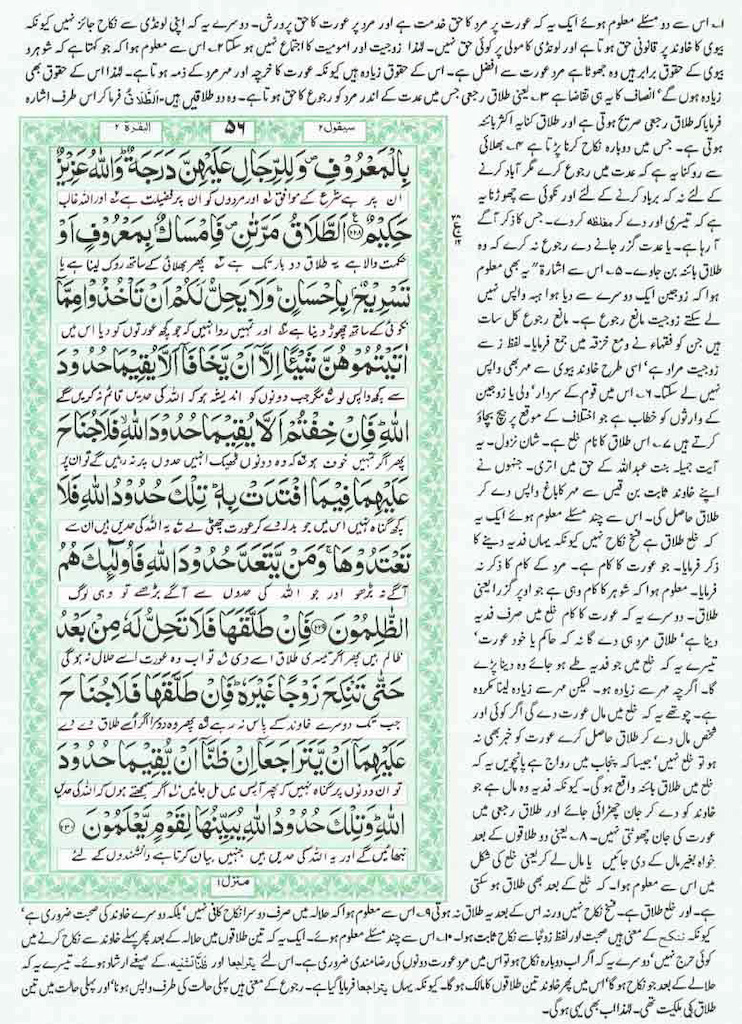 ۱۔ اس سے دو مسئلے معلوم ہوئے ایک یہ کہ عورت پر مرد کا حق خدمت ہے اور مرد پر عورت کا حق پرورش۔ دوسرے یہ کہ اپنی لونڈی سے نکاح جائز نہیں کیونکہ
بیوی کا خاوند پر قانونی حق ہوتا ہے اور لونڈی کا مولی پر کوئی حق نہیں۔ لہٰذا زوجیت اور امومیت کا اجتماع نہیں ہو سکتا ۲۔ اس سے معلوم ہوا کہ جو کہتا ہے کہ شوہر و
بیوی کے حقوق برابر ہیں وہ جھوٹا ہے مرد عورت سے افضل ہے۔ اس کے حقوق زیادہ ہیں کیونکہ عورت کا خرچہ اور مہر مرد کے ذمہ ہوتا ہے۔ لہٰذا اس کے حقوق بھی
زیادہ ہوں گے، انصاف کا یہ ہی تقاضا ہے ۳۔ یعنی طلاق رجعی جس میں عدت کے اندر مرد کو رجوع کا حق ہوتا ہے۔ وہ دو طلاقیں ہیں۔ الطَّلَاقُ فرما کر اس طرف اشارہ
فرمایا کہ طلاق رجعی صریح ہوتی ہے اور طلاق کنایہ اکثر بائنہ
ہوتی ہے۔ جس میں دوبارہ نکاح کرنا پڑتا ہے ۴۔ بھلائی
سے روکنا یہ ہے کہ عدت میں رجوع کرے مگر آباد کرنے
کے لئے نہ کہ برباد کرنے کے لئے اور نکوئی سے چھوڑنا یہ
ہے کہ تیسری اور دے کر مغلظہ کر دے۔ جس کا ذکر آگے
آ رہا ہے۔ یا عدت گزر جانے دے رجوع نہ کرے کہ وہ
طلاق بائنہ بن جاوے۔ ۵۔ اس سے اشارۃ" یہ بھی معلوم
ہوا کہ زوجین ایک دوسرے سے دیا ہوا ہبہ واپس نہیں
لے سکتے زوجیت مانع رجوع ہے۔ مانع رجوع کل سات
ہیں جن کو فقہاء نے دمع خزقہ میں جمع فرمایا۔ لفظ ز سے
زوجیت مراد ہے، اسی طرح خاوند بیوی سے مہر بھی واپس
نہیں لے سکتا۔ ۶۔ اس میں قوم کے سردار، ولی یا زوجین
کے وارثوں کو خطاب ہے جو اختلاف کے موقع پر بیچ بچاؤ
کرتے ہیں ۷۔ اس طلاق کا نام خلع ہے۔ شان نزول۔ یہ
آیت جمیلہ بنت عبداللہ کے حق میں اتری۔ جنہوں نے
اپنے خاوند ثابت بن قیس سے مہر کا باغ واپس دے کر
طلاق حاصل کی۔ اس سے چند مسئلے معلوم ہوئے ایک یہ
کہ خلع طلاق ہے فسخ نکاح نہیں کیونکہ یہاں فدیہ دینے کا
ذکر فرمایا۔ جو عورت کا کام ہے۔ مرد کے کام کا ذکر نہ
فرمایا۔ معلوم ہوا کہ شوہر کا کام وہی ہے جو اوپر گزرا یعنی
طلاق۔ دوسرے یہ کہ عورت کا کام خلع میں صرف فدیہ
دینا ہے، طلاق مرد ہی دے گا نہ کہ حاکم یا خود عورت،
تیسرے یہ کہ خلع میں جو فدیہ طے ہو جائے وہ دینا پڑے
گا۔ اگرچہ مہر سے زیادہ ہو۔ لیکن مہر سے زیادہ لینا مکروہ
ہے۔ چوتھے یہ کہ خلع میں مال عورت دے گی اگر کوئی اور
شخص مال دے کر طلاق حاصل کرے عورت کو خبر بھی نہ
ہو تو خلع نہیں، جیسا کہ پنجاب میں رواج ہے پانچویں یہ کہ
خلع میں طلاق بائنہ واقع ہو گی۔ کیونکہ فدیہ وہ مال ہے جو
خاوند کو دے کر جان چھڑائی جائے اور طلاق رجعی میں
عورت کی جان چھوٹتی نہیں۔ ۸۔ یعنی دو طلاقوں کے بعد
خواہ بغیر مال کے دی جائیں یا مال لے کر یعنی خلع کی شکل
میں اس سے معلوم ہوا۔ کہ خلع کے بعد بھی طلاق ہو سکتی
سیقول ۲
۵۶
البقرة ۲
بِالْمَعْرُوفِ وَلِلرِّجَالِ عَلَيْهِنَّ دَرَجَةٌ وَاللَّهُ عَزِيزٌ
ان پر ہے شرع کے موافق اور مردوں کو ان پر فضیلت ہے اور اللہ غالب
حَكِيمٌ ۲۲۸ الطَّلَاقُ مَرَّتَٰنِ فَإِمْسَاكٌ بِمَعْرُوفٍ أَوْ
حکمت والا ہے یہ طلاق دو بار تک ہے پھر بھلائی کے ساتھ روک لینا ہے یا
تَسْرِيحٌ بِإِحْسَانٍ وَلَا يَحِلُّ لَكُمْ أَنْ تَأْخُذُوا مِمَّا
نکوئی کے ساتھ چھوڑ دینا ہے اور تمہیں روا نہیں کہ جو کچھ عورتوں کو دیا اس میں
آتَيْتُمُوهُنَّ شَيْئًا إِلَّا أَنْ يَخَافَا أَلَّا يُقِيمَا حُدُودَ
سے کچھ واپس لو مگر جب دونوں کو اندیشہ ہو کہ اللہ کی حدیں قائم نہ کریں گے
اللَّهِ فَإِنْ خِفْتُمْ أَلَّا يُقِيمَا حُدُودَ اللَّهِ فَلَا جُنَاحَ
پھر اگر تمہیں خوف ہو کہ وہ دونوں ٹھیک انہیں حدوں پر نہ رہیں گے تو ان پر
عَلَيْهِمَا فِيمَا افْتَدَتْ بِهِ تِلْكَ حُدُودُ اللَّهِ فَلَا
کچھ گناہ نہیں اس میں جو بدلہ دے کر عورت چھٹی لے یہ اللہ کی حدیں ہیں ان سے
تَعْتَدُوهَا وَمَنْ يَتَعَدَّ حُدُودَ اللَّهِ فَأُولَٰئِكَ هُمُ
آگے نہ بڑھو اور جو اللہ کی حدوں سے آگے بڑھے تو وہی لوگ
الظَّالِمُونَ ۲۲۹ فَإِنْ طَلَّقَهَا فَلَا تَحِلُّ لَهُ مِنْ بَعْدُ
ظالم ہیں پھر اگر تیسری طلاق اسے دی تو اب وہ عورت اسے حلال نہ ہو گی
حَتَّىٰ تَنْكِحَ زَوْجًا غَيْرَهُ فَإِنْ طَلَّقَهَا فَلَا جُنَاحَ
جب تک دوسرے خاوند کے پاس نہ رہے پھر وہ دوسرا اگر اسے طلاق دے دے
عَلَيْهِمَا أَنْ يَتَرَاجَعَا إِنْ ظَنَّا أَنْ يُقِيمَا حُدُودَ
تو ان دونوں پر گناہ نہیں کہ پھر آپس میں مل جائیں اگر سمجھتے ہوں کہ اللہ کی حدیں
اللَّهِ وَتِلْكَ حُدُودُ اللَّهِ يُبَيِّنُهَا لِقَوْمٍ يَعْلَمُونَ ۲۳۰
نبھائیں گے اور یہ اللہ کی حدیں ہیں جنہیں بیان کرتا ہے دانشمندوں کے لئے
منزل ۱
ہے۔ اور خلع طلاق ہے۔ فسخ نکاح نہیں ورنہ اس کے بعد یہ طلاق نہ ہوتی ۹۔ اس سے معلوم ہوا کہ حلالہ میں صرف دوسرا نکاح کافی نہیں، بلکہ دوسرے خاوند کی صحبت ضروری ہے،
کیونکہ تنکح کے معنی ہیں صحبت اور لفظ زوجًا سے نکاح ثابت ہوا۔ ۱۰۔ اس سے چند مسئلے معلوم ہوئے۔ ایک یہ کہ تین طلاقوں میں حلالہ کے بعد پھر پہلے خاوند سے نکاح کرنے میں
کوئی حرج نہیں، دوسرے یہ کہ اگر اب دوبارہ نکاح ہو تو اس میں مرد عورت دونوں کی رضامندی ضروری ہے۔ اس لئے یتراجعا اور ظنا تثنیہ کے صیغے ارشاد ہوئے۔ تیسرے یہ کہ
حلالے کے بعد جو نکاح ہو گا، اس میں پھر خاوند تین طلاقوں کا مالک ہو گا۔ کیونکہ یہاں یتراجعا فرمایا گیا ہے۔ رجوع کے معنی ہیں پہلی حالت کی طرف واپس ہونا، اور پہلی حالت میں تین
طلاق کی ملکیت تھی۔ لہٰذا اب بھی یہی ہو گی۔